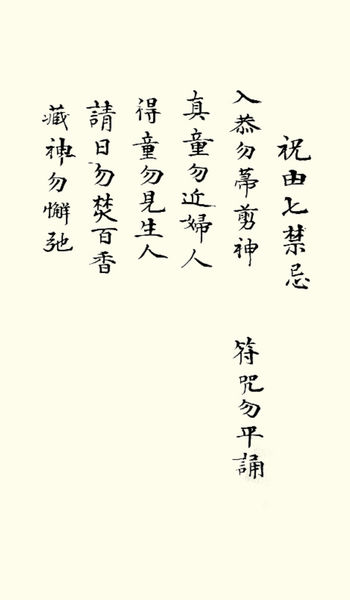 祝由七禁忌
入恭勿幕剪神 符咒勿平誦
真童勿近婦人
得童勿見生人
請日勿焚百香
藏神勿懈弛